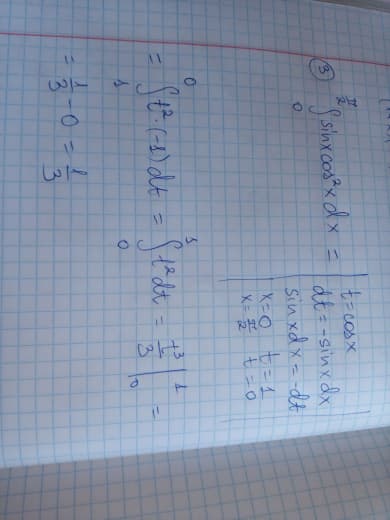 ③ ∫₀^{π/2} sinx cos²x dx =
t = cosx
dt = -sinx dx
sinxdx = -dt
x=0 t=1
x=π/2 t=0
= ∫₁⁰ t²·(-1) dt = ∫₀¹ t² dt = t³/3 |₀¹ =
= 1/3 - 0 = 1/3